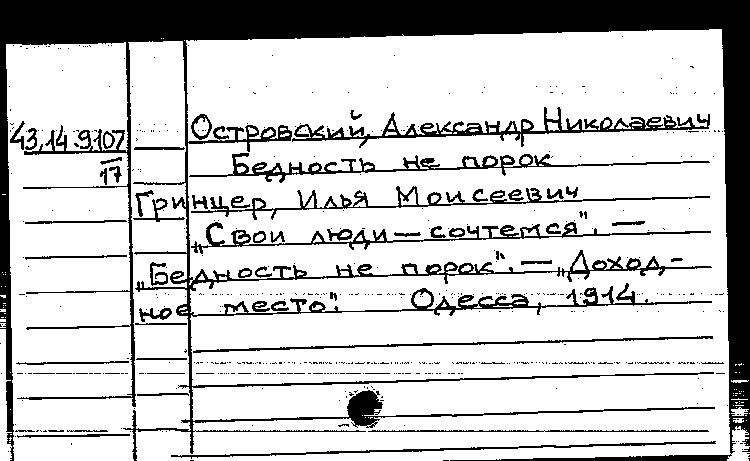 43.14.9.107
17
Островский, Александр Николаевич
Бедность не порок
Гринцер, Илья Моисеевич
„Свои люди — сочтемся". —
„Бедность не порок". — „Доход-
ное место". Одесса, 1914.